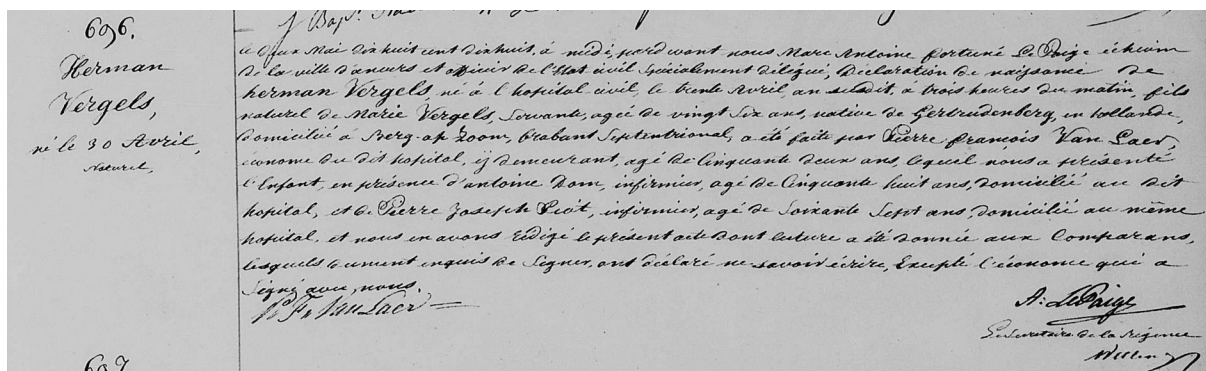 696.
Herman
Vergels,
né le 30 Avril,
naturel,
Le deux Mai dixhuit cent dixhuit, à midi, pardevant nous Marc Antoine fortuné Le Paige échevin
de la ville d'anvers et officier de l'Etat civil spécialement délégué, Déclaration de naissance de
herman Vergels, né à l'hopital civil, le trente Avril, an susdit, à trois heures du matin, fils
naturel de Marie Vergels, servante, agée de vingt six ans, native de Gertrudenberg, en hollande,
domiciliée à Berg-op Zoom, brabant Septentrional, a été faite par Pierre françois Van Laer,
économe du dit hopital, ij demeurant, agé de Cinquante deux ans, lequel nous a présenté
l'Enfant, en présence d'antoine Dom, infirmier, agé de Cinquante huit ans, domicilié au dit
hopital, et de Pierre Joseph Piot, infirmier, agé de Soixante Sept ans, domicilié au même
hopital, et nous en avons rédigé le présent acte dont lecture a été donnée aux Comparans,
lesquels dument enquis de Signer, ont déclaré ne savoir écrire, Excepté l'économe qui a
Signé avec nous.
P. F. Van Laer
A: LePaige
Le Secretaire de la Régence
697